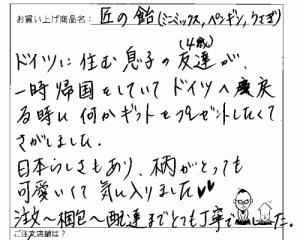 お買い上げ商品名： 匠の飴(ミニミックス,ペンギン,うさぎ)
(4歳)
ドイツに住む息子の友達が、
一時帰国をしていてドイツへ戻
る時に何かギフトをプレゼントしたくて
さがしました。
日本らしさもあり、柄がとっても
可愛いくて気に入りました♥♥
注文〜梱包〜配達までとても丁寧でした。
ご注文店舗は？